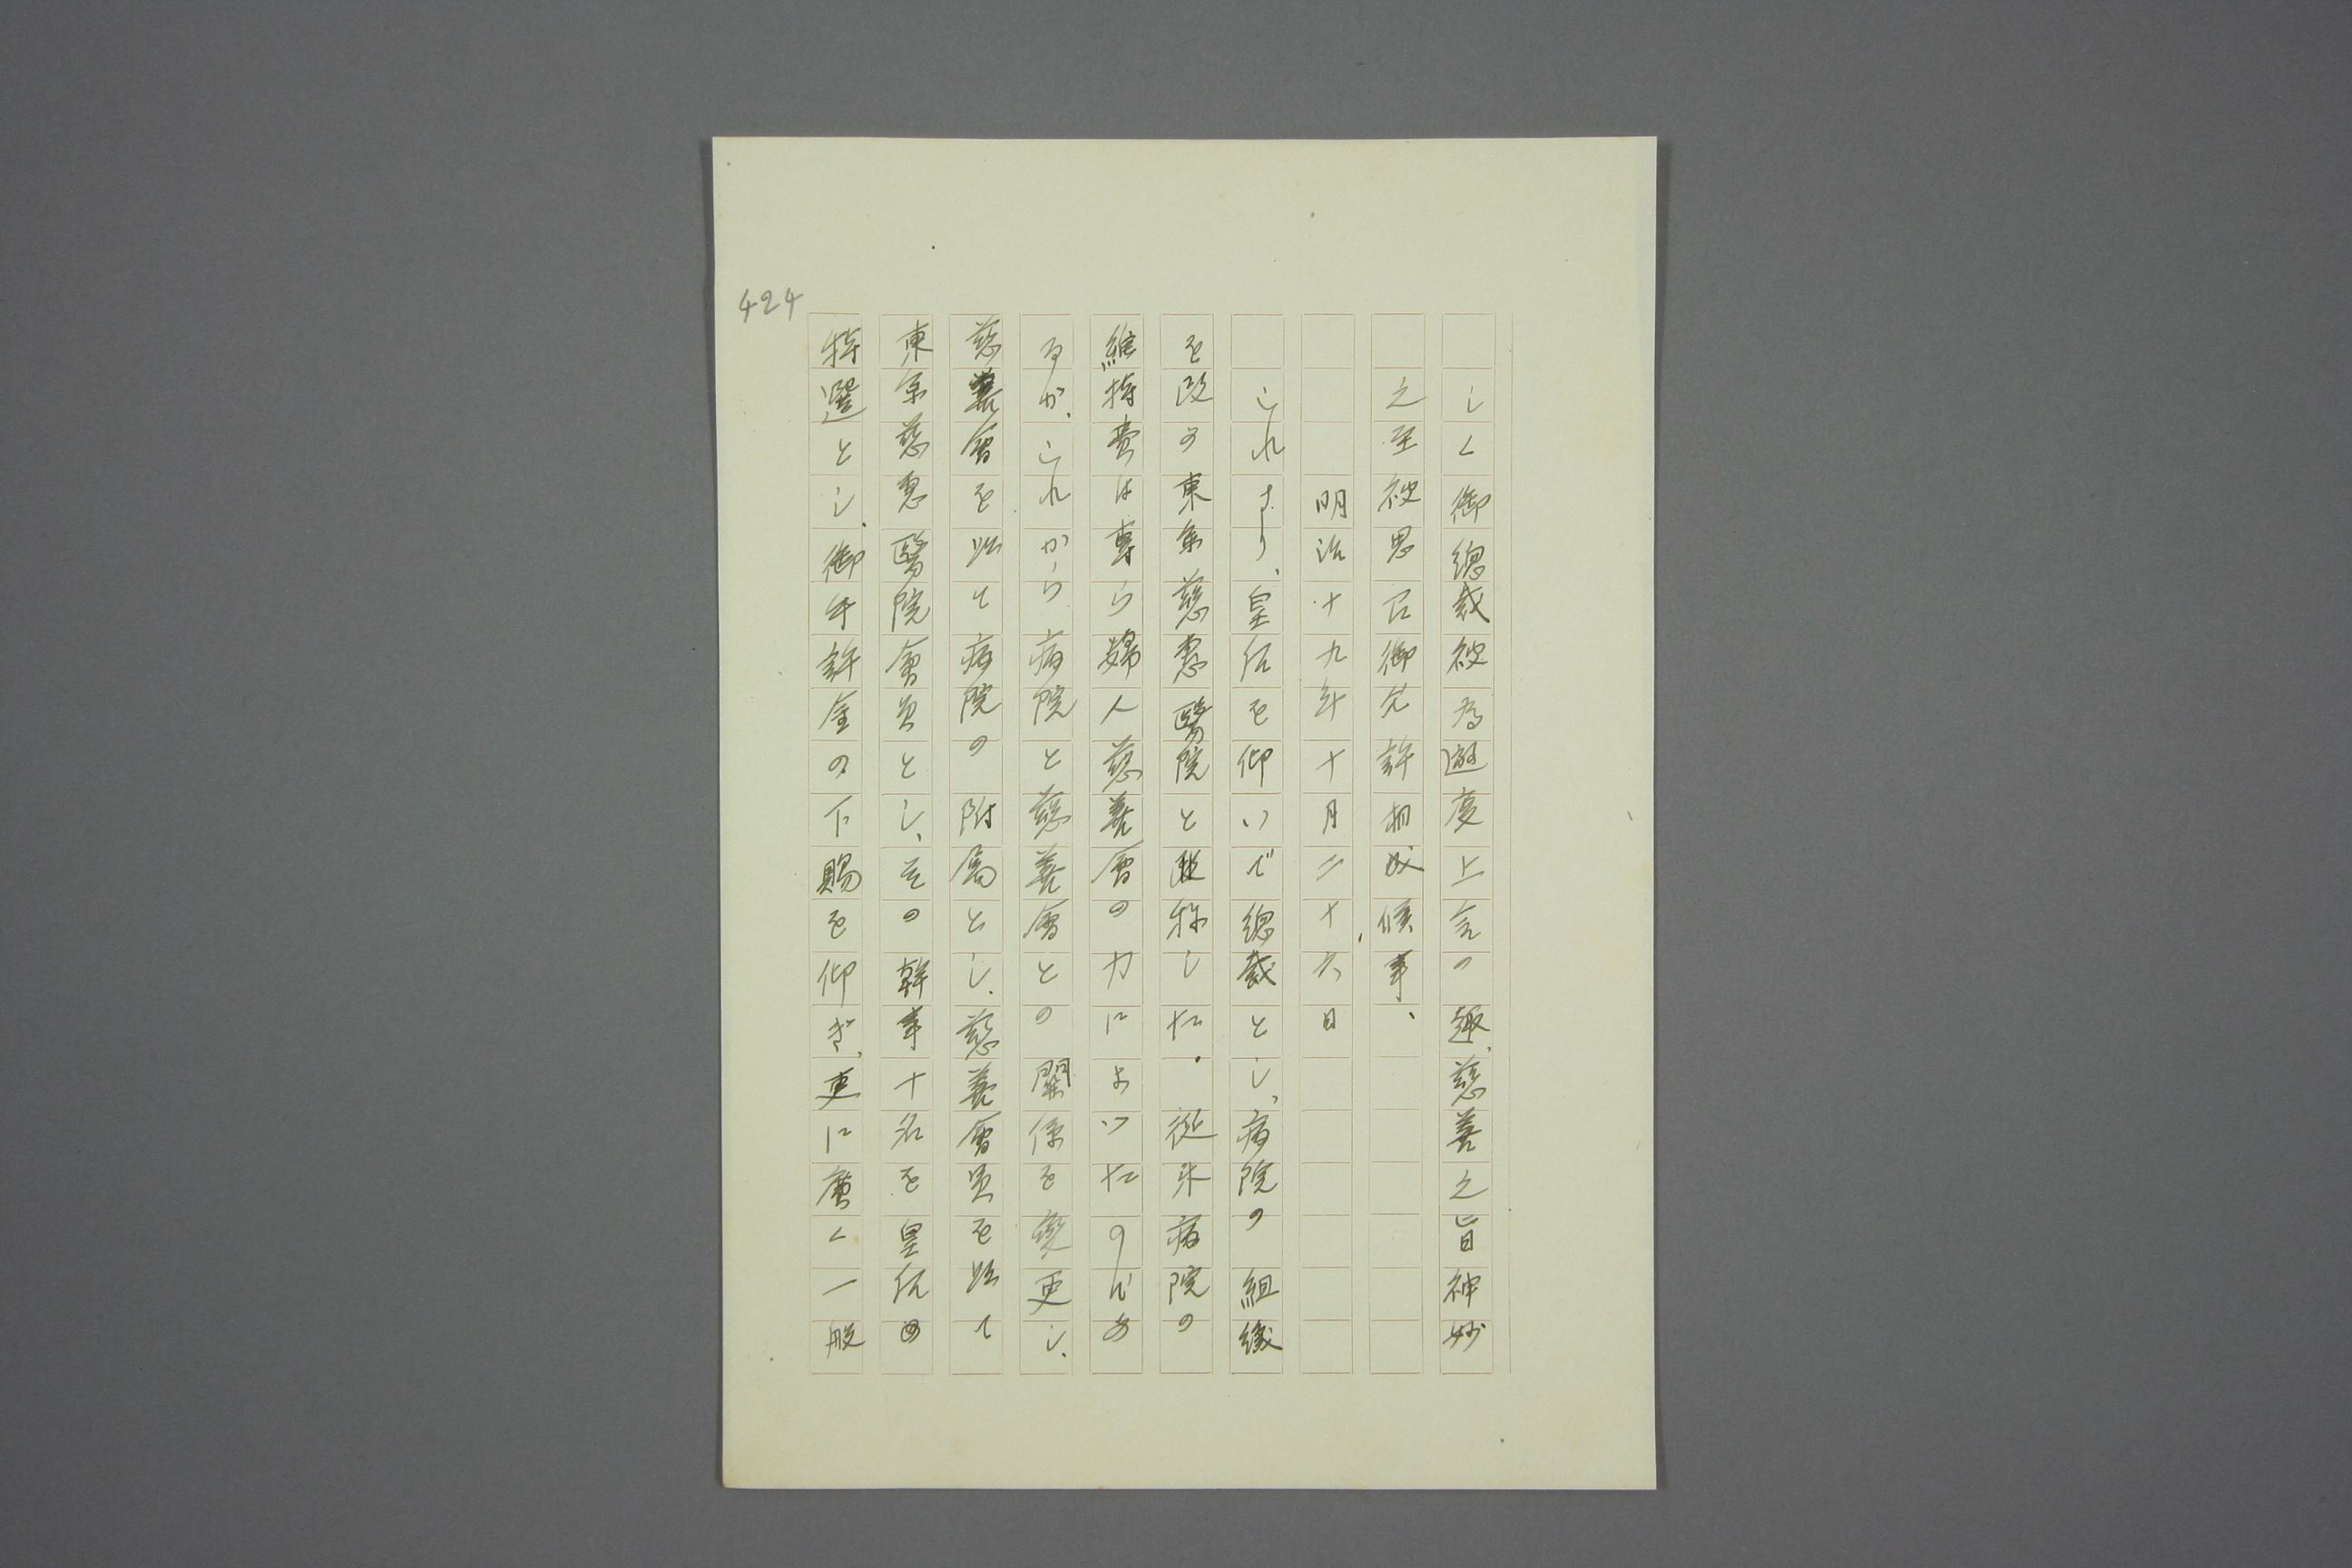 424
しく御總裁被為遊度上言の趣、慈善之旨神妙
之至被思召御允許相成候事、
明治十九年十月二十六日
これより、皇后を仰いで總裁とし、病院の組織
を改め東京慈惠醫院と改稱した。從来病院の
維持費は專ら婦人慈善會の力によつたのであ
るが、これから病院と慈善會との關係を變更し、
慈善會を以て病院の附属とし、慈善會員を以て
東京慈惠醫院會員とし、その幹事十名を皇后の
特選とし、御手許金の下賜を仰ぎ、更に廣く一般